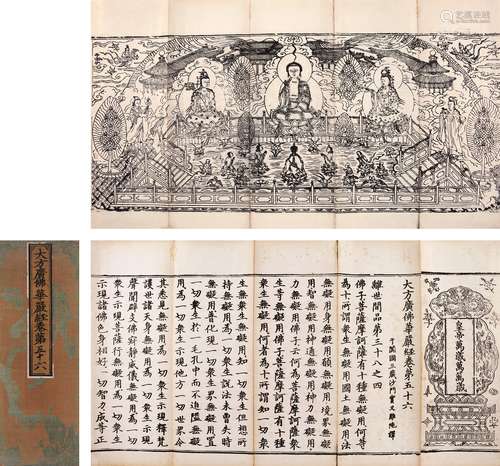 大方廣佛華嚴經卷第五十六
皇帝萬歲萬萬歲
大方廣佛華嚴經卷第五十六
于闐國三藏沙門實叉難陀譯
離世間品第三十八之四
佛子菩薩摩訶薩有十種無礙用何等
為十所謂眾生無礙用國土無礙用法
無礙用身無礙用願無礙用境界無礙
用智無礙用神通無礙用神力無礙用
力無礙用佛子云何為菩薩摩訶薩眾
生等無礙用佛子菩薩摩訶薩有十種
眾生無礙用何者為十所謂知一切眾
生無眾生無礙用知一切眾生但想所
持無礙用為一切眾生說法未曾失時
無礙用普化現一切眾生界無礙用置
一切眾生於一毛孔中而不迫隘無礙
用為一切眾生示現他方一切世界令
其悉見無礙用為一切眾生示現釋梵
護世諸天身無礙用為一切眾生示現
聲聞辟支佛寂靜威儀無礙用為一切
眾生示現菩薩行無礙用為一切眾生
示現諸佛色身相好一切智力成等正